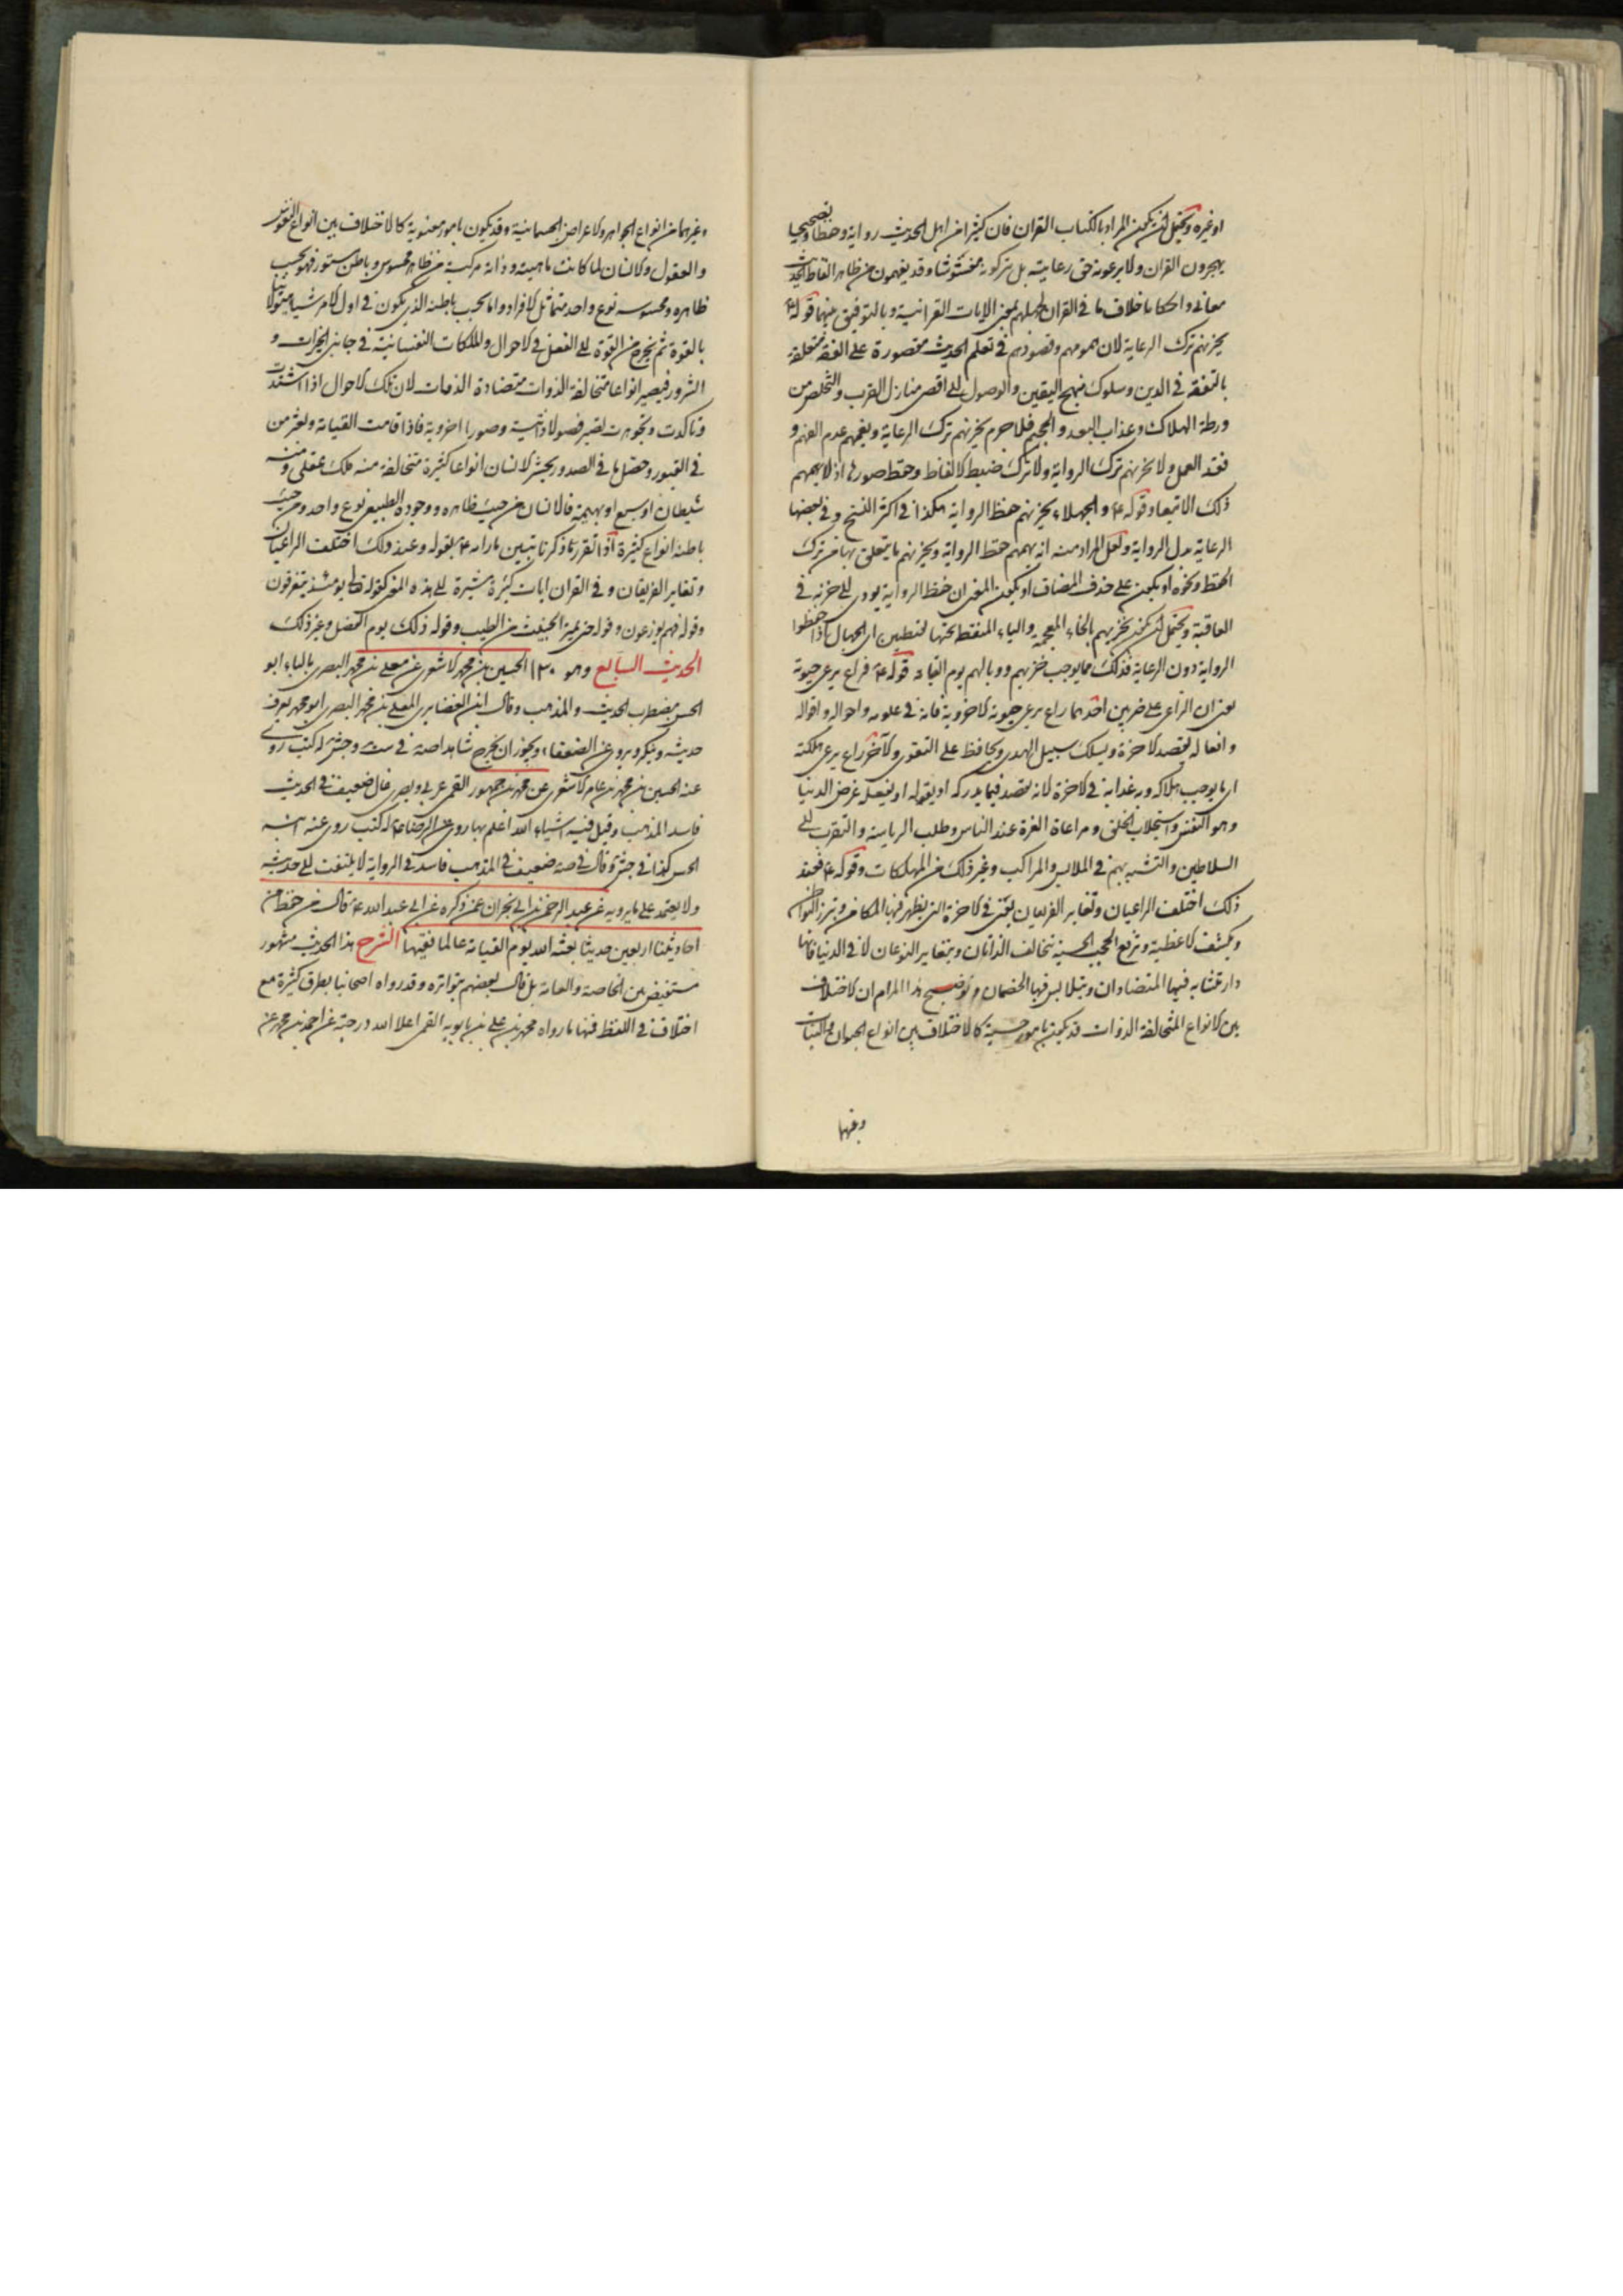 او غيره ويحتمل ان يكون المراد بالكتاب القران فان كثيرا من اهل الحديث رواية وحفظا وتصحيحا
يهجرون القران ولا يرعونه حق رعايته بل يتركونه مغشوشا وقد يفهمون من ظاهر الفاظ الحديث
معانى واحكاما خلاف ما فى القران لجهلهم بمعنى الايات القرانية وبالتوفيق بينهما قوله ع
يحزنهم ترك الرعاية لان همومهم وقصودهم فى تعلم الحديث مقصورة على الفقه متعلقة
بالتفقه فى الدين وسلوك منهج اليقين والوصول الى اقصى منازل القرب والتخلص من
ورطة الهلاك وعذاب البعد والجحيم فلا جرم يحزنهم ترك الرعاية ويغمهم عدم الفهم و
فقد العمل ولا يحزنهم ترك الرواية ولا ترك ضبط الالفاظ وحفظ صورها اذ لا يهمهم
ذلك الا تبعا وقوله ع والجهلاء يحزنهم حفظ الرواية هكذا فى اكثر النسخ وفى بعضها
الرعاية بدل الرواية ولعل المراد منه انه يهمهم حفظ الرواية ويحزنهم ما يتعلق بها من ترك
الحفظ ونحوه او يكون على حذف المضاف او يكون المعنى ان حفظ الرواية يودى الى حزنه فى
العاقبة ويحتمل ان يكون يخزيهم بالخاء المعجمة والياء المنقط تحتها نقطتين اى الجهال اذا حفظوا
الرواية دون الرعاية فذلك مما يوجب خزيهم ووبالهم يوم القيامة قوله ع فراع يرعى حيوته
يعنى ان الراعى على ضربين احدهما راع يرعى حيوته الاخروية فانه فى علومه واحواله واقواله
وافعاله يقصد الاخرة ويسلك سبيل الهدى ويحافظ على التقوى والاخر راع يرعى هلكته
اى ما يوجب هلاكه وبه عذابه فى الاخرة لانه يقصد فيما يدركه او يقوله او يفعله غرض الدنيا
وهو النفس واستجلاب الخلق ومراعاة العزة عند الناس وطلب الرياسة والتقرب الى
السلاطين والتشبه بهم فى الملابس والمراكب وغير ذلك من المهلكات وقوله ع فعند
ذلك اختلف الراعيان وتغاير الفريقان يعنى فى الاخرة التى يظهر فيها المكامن وتبرز البواطن
ويكشف الاغطية وترفع الحجب الحسية تخالف الذاتان وتتغاير النوعان لا فى الدنيا فانها
دار تتشابه فيها المتضادان ويتلابس فيها الخصمان وتوضيح هذا المرام ان الاختلاف
بين الانواع المتخالفة الذوات قد يكون بامور حسية كالاختلاف بين انواع الحيوان والنبات
وغيرهما
وغيرهما من انواع الجواهر والاعراض الجسمانية وقد يكون بامور معنوية كالاختلاف بين انواع النفوس
والعقول والانسان لما كانت ماهيته وذاته مركبة من ظاهر محسوس وباطن مستور فهو بحسب
ظاهره ومحسوسه نوع واحد متماثل الافراد واما بحسب باطنه الذى يكون فى اول الامر شيئا هيولانيا
بالقوة ثم يخرج من القوة الى الفعل فى الاحوال والملكات النفسانية فى جانبى الخيرات و
الشرور فيصير انواعا متخالفة الذوات متضادة الذوات لان تلك الاحوال اذا اشتدت
وتاكدت وتجوهرت تصير فصولا ذاتية وصورا اخروية فاذا قامت القيامة وبعثر من
فى القبور وحصل ما فى الصدور يحشر الانسان انواعا كثيرة متخالفة منه ملك عقلى ومنه
شيطان او سبع او بهيمة فالانسان من حيث ظاهره ووجوده الطبيعى نوع واحد ومن حيث
باطنه انواع كثيرة اذا تقرر ما ذكرنا تبين ما رامه ع بقوله وعند ذلك اختلف الراعيان
وتغاير الفريقان وفى القران ايات كثيرة مشيرة الى هذه المعنى كقوله تعالى يومئذ يتفرقون
وقوله فهم يوزعون وقوله حتى يميز الخبيث من الطيب وقوله ذلك يوم الفصل وغير ذلك
الحديث السابع وهو ١٣٠ الحسين بن محمد الاشعرى عن معلى بن محمد البصرى بالباء ابو
الحسن مضطرب الحديث والمذهب وقال ابن الغضايرى المعلى بن محمد البصرى ابو محمد يعرف
حديثه وينكر ويروى عن الضعفاء ويجوز ان يخرج شاهدا صة فى ست وجش له كتب روى
عنه الحسين بن محمد بن عامر الاشعرى عن محمد بن جمهور القمى عربى وبصرى غال ضعيف فى الحديث
فاسد المذهب وقيل فيه اشياء الله اعلم بها روى عن الرضا ع له كتب روى عنه ابنه
الحسن كذا فى جش وقال فى صة ضعيف فى المذهب فاسد فى الرواية لا يلتفت الى حديثه
ولا يعتمد على ما يرويه عن عبد الرحمن بن ابى نجران عمن ذكره عن ابى عبد الله ع قال من حفظ من
احاديثنا اربعين حديثا بعثه الله يوم القيامة عالما فقيها الشرح هذا الحديث مشهور
مستفيض بين الخاصة والعامة بل قال بعضهم بتواتره وقد رواه اصحابنا بطرق كثيرة مع
اختلاف فى اللفظ فمنها ما رواه محمد بن على بن بابويه القمى اعلا الله درجته عن احمد بن محمد عن